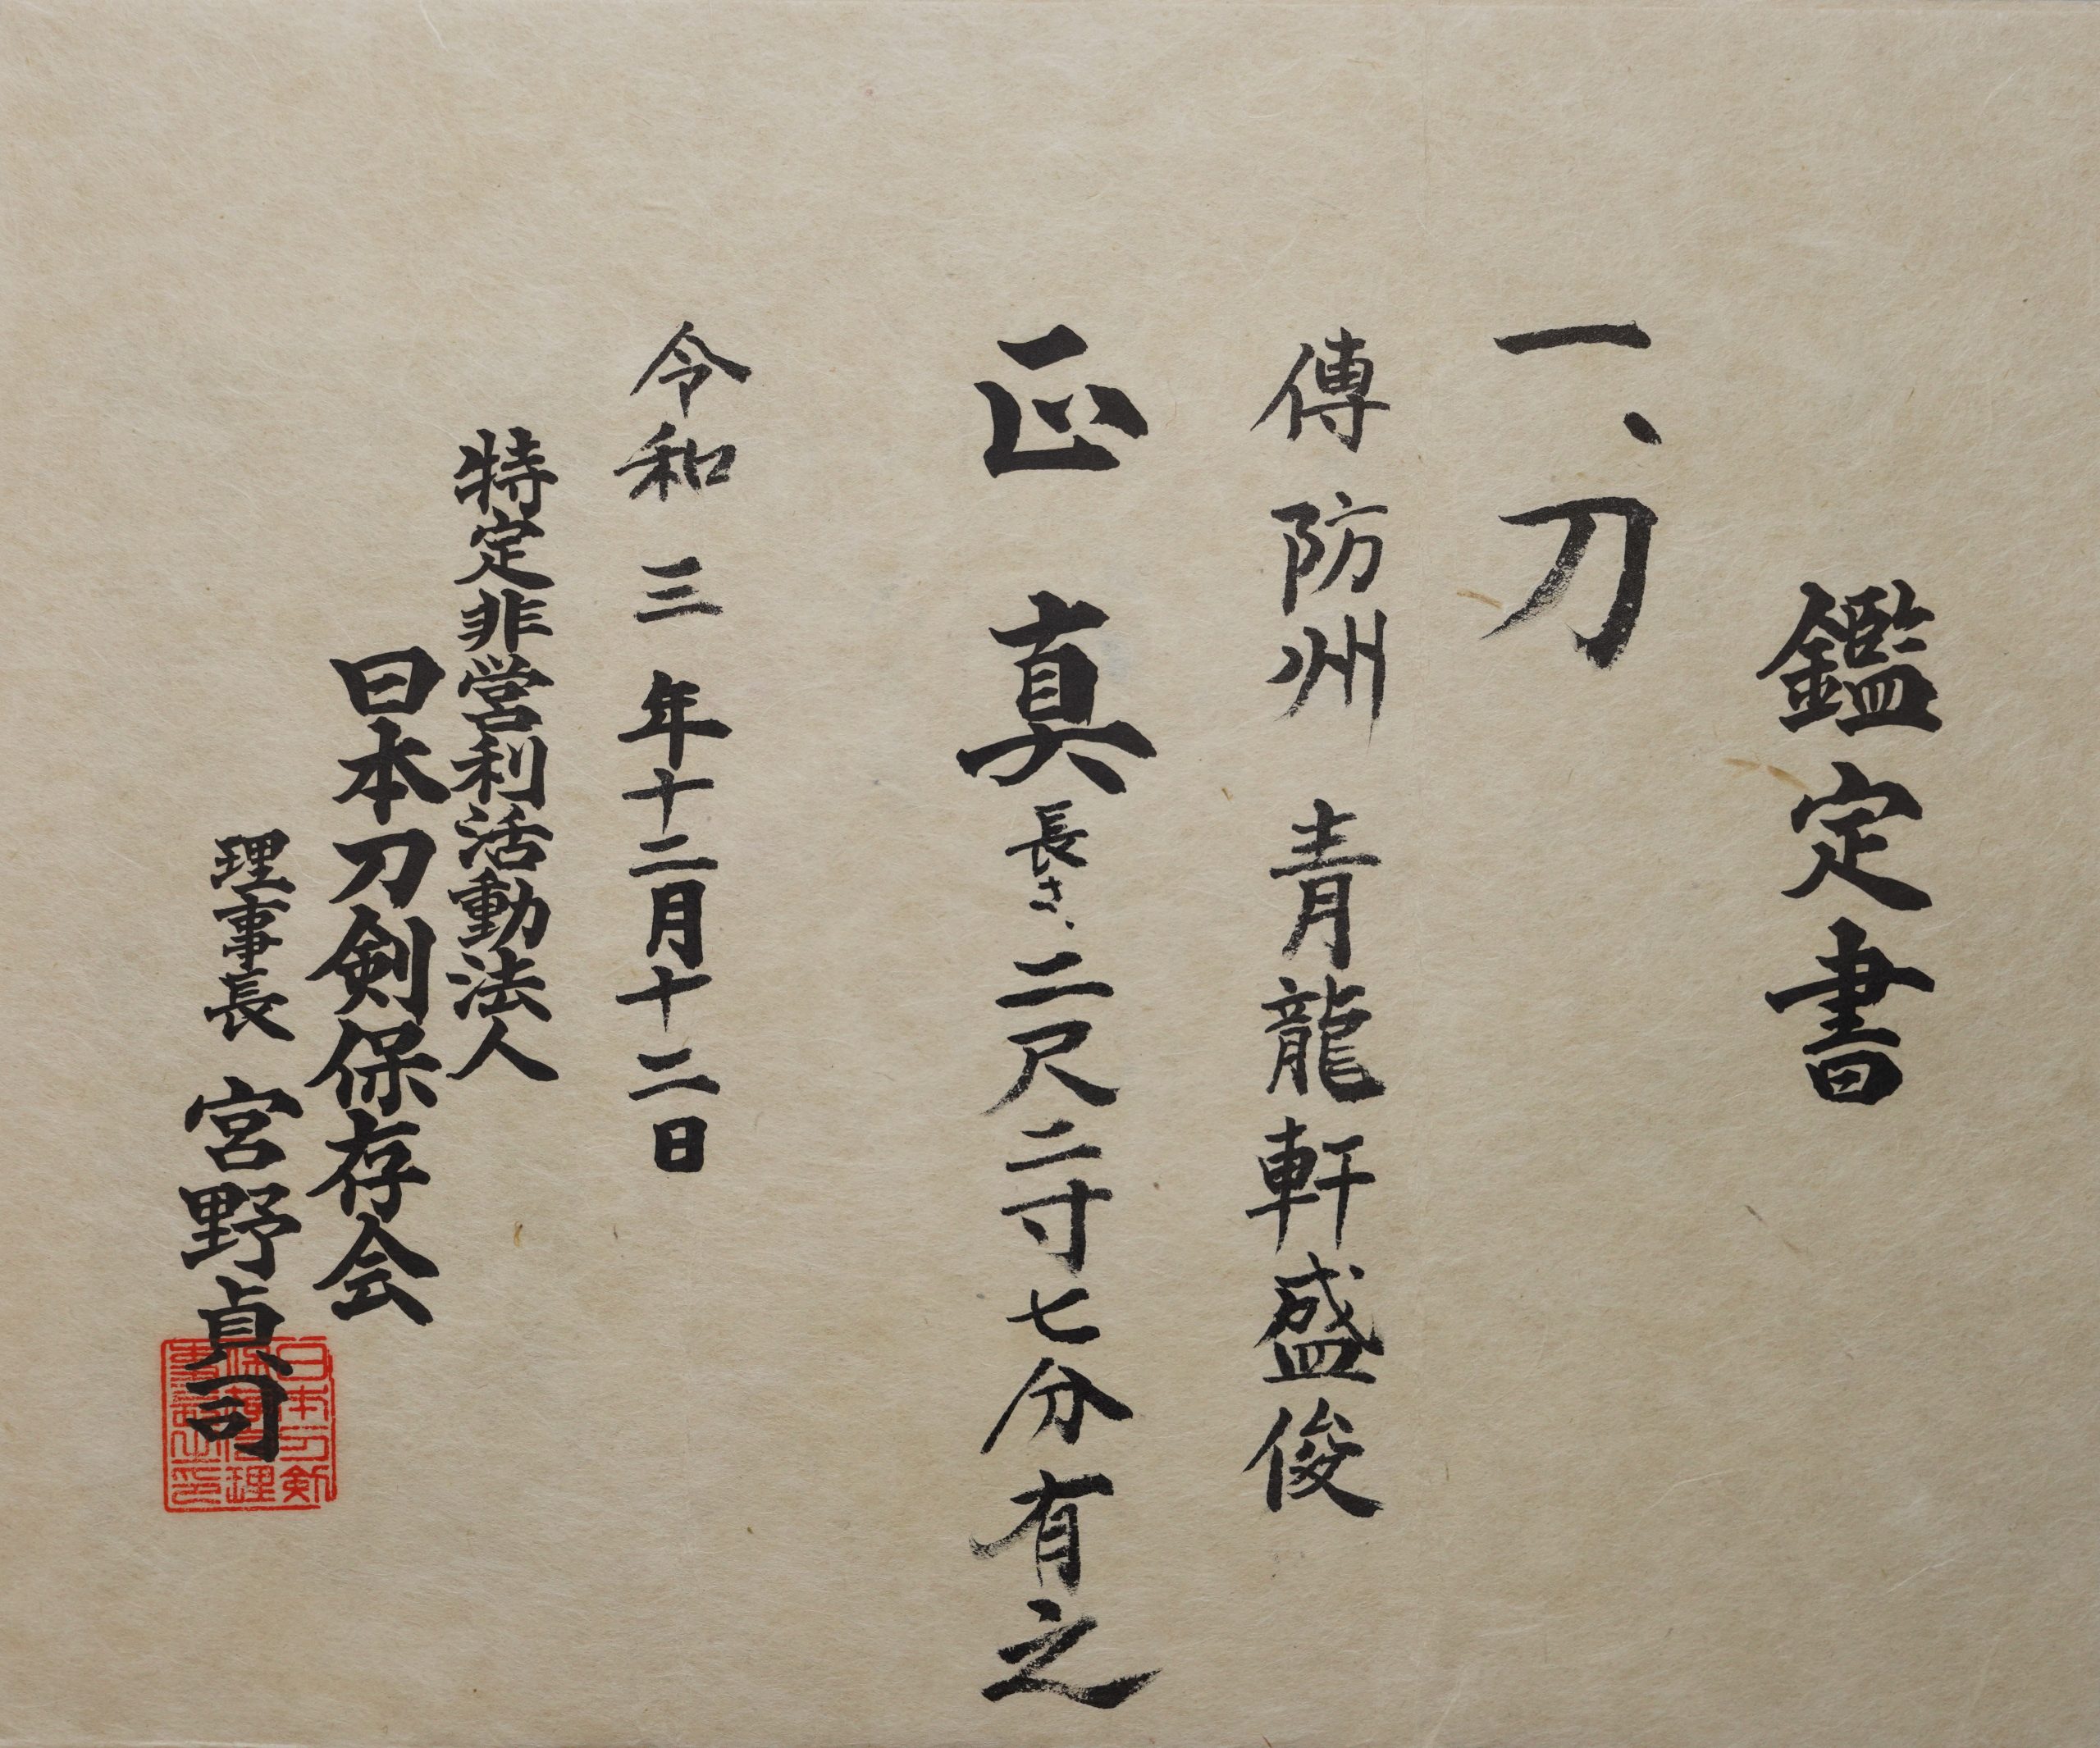 鑑定書
一、刀
傳 防州 青龍軒盛俊
正 真 長さ、二尺二寸七分有之
令和三年十二月十二日
特定非営利活動法人
日本刀剣保存会
理事長 宮野貞司